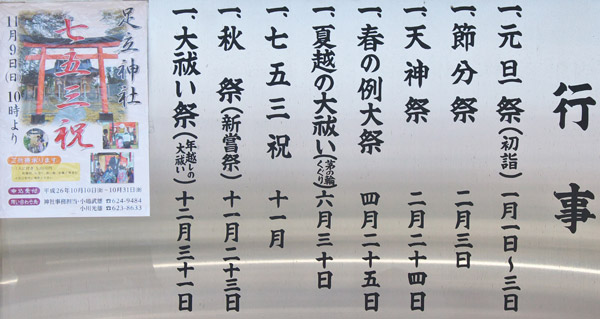 行事
一、元旦祭(初詣) 一月一日～三日
一、節分祭 二月三日
一、天神祭 二月二十四日
一、春の例大祭 四月二十五日
一、夏越の大祓い(茅の輪くぐり) 六月三十日
一、七五三祝 十一月
一、秋祭(新嘗祭) 十一月二十三日
一、大祓い祭(年越しの大祓い) 十二月三十一日
足立神社
七五三祝
11月9日(日) 10時より
申込受付 平成26年10月10日㈮～10月31日㈮
問い合わせ先 神社事務担当・小嶋武督 ☎624-9484
小川光雄 ☎623-8633